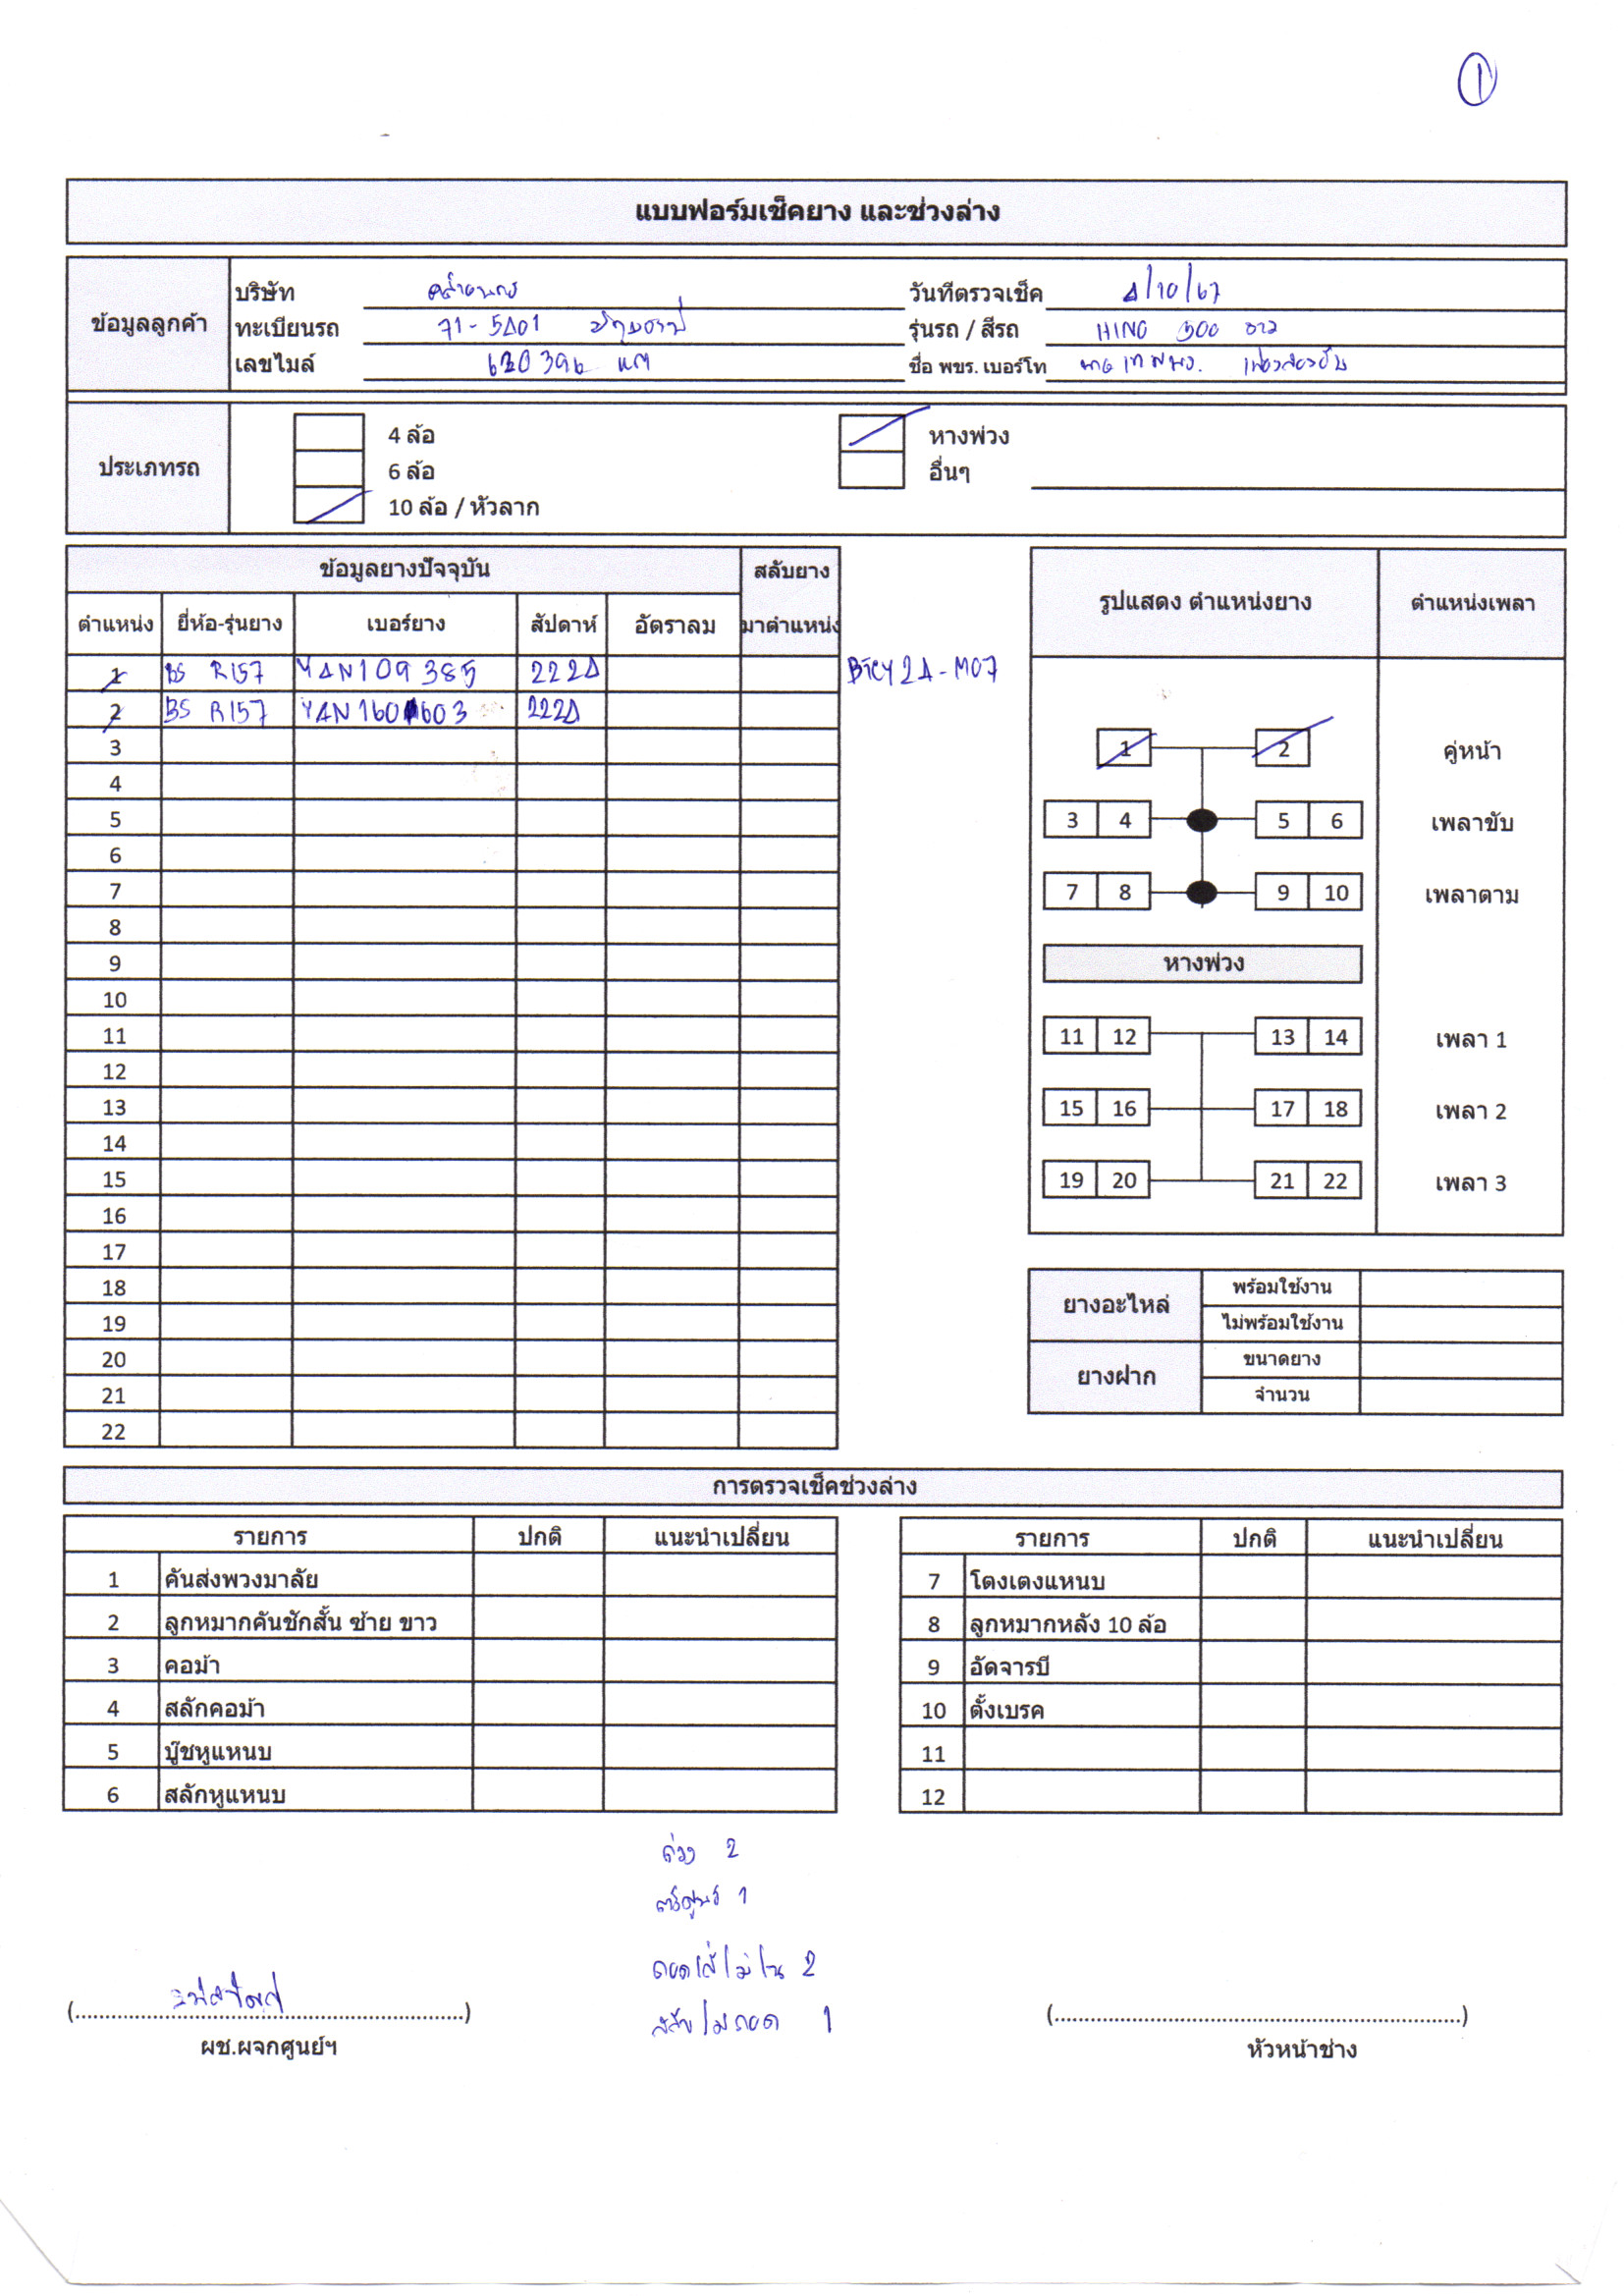 1
แบบฟอร์มเช็คยาง และช่วงล่าง
ข้อมูลลูกค้า
บริษัท
วันที่ตรวจเช็ค 4/10/67
ทะเบียนรถ 71-5401 ปทุมธานี
รุ่นรถ / สีรถ HINO 500 ขาว
เลขไมล์ 620396 กม
ชื่อ พขร. เบอร์โท
ประเภทรถ
4 ล้อ
หางพ่วง
6 ล้อ
อื่นๆ
10 ล้อ / หัวลาก
ข้อมูลยางปัจจุบัน สลับยาง
ตำแหน่ง ยี่ห้อ-รุ่นยาง เบอร์ยาง สัปดาห์ อัตราลม มาตำแหน่ง
1 BS R157 YAN109385 2224
2 BS R157 2224
3
4
5
6
7
8
9
10
11
12
13
14
15
16
17
18
19
20
21
22
รูปแสดง ตำแหน่งยาง ตำแหน่งเพลา
1 2 คู่หน้า
3 4 5 6 เพลาขับ
7 8 9 10 เพลาตาม
หางพ่วง
11 12 13 14 เพลา 1
15 16 17 18 เพลา 2
19 20 21 22 เพลา 3
ยางอะไหล่ พร้อมใช้งาน
ไม่พร้อมใช้งาน
ยางฝาก ขนาดยาง
จำนวน
การตรวจเช็คช่วงล่าง
รายการ ปกติ แนะนำเปลี่ยน
1 คันส่งพวงมาลัย
2 ลูกหมากคันชักสั้น ซ้าย ขาว
3 คอม้า
4 สลักคอม้า
5 บู๊ชหูแหนบ
6 สลักหูแหนบ
รายการ ปกติ แนะนำเปลี่ยน
7 โตงเตงแหนบ
8 ลูกหมากหลัง 10 ล้อ
9 อัดจารบี
10 ตั้งเบรค
11
12
ถ่วง 2
ตั้งศูนย์ 1
ถอดใส่ไม่ใน 2
สลับไม่ถอด 1
(..............................)
ผช.ผจกศูนย์ฯ
(..............................)
หัวหน้าช่าง